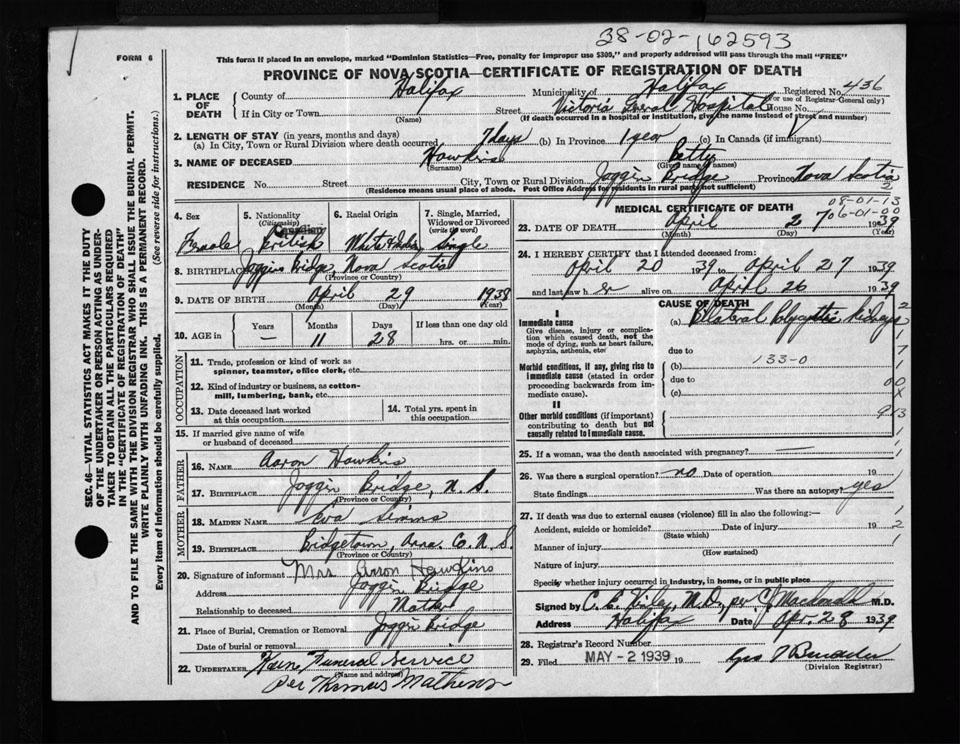 38-02-162593
FORM 6
This form if placed in an envelope, marked "Dominion Statistics—Free, penalty for improper use $300," and properly addressed will pass through the mail "FREE"
PROVINCE OF NOVA SCOTIA—CERTIFICATE OF REGISTRATION OF DEATH
1. PLACE OF DEATH
County of Halifax Municipality of Halifax Registered No. 436
(For use of Registrar-General only)
If in City or Town Street Victoria General Hospital House No.
(Name) (If death occurred in a hospital or institution, give the name instead of street and number)
2. LENGTH OF STAY (in years, months and days)
(a) In City, Town or Rural Division where death occurred 7 days (b) In Province 1 year (c) In Canada (if immigrant)
3. NAME OF DECEASED Hawkins Betty
(Surname) (Given name or names)
RESIDENCE No. Street City, Town or Rural Division Joggin Bridge Province Nova Scotia
(Residence means usual place of abode. Post Office Address for residents in rural parts not sufficient)
2
4. Sex
Female
5. Nationality
(Citizenship)
Canadian
British
6. Racial Origin
White
7. Single, Married, Widowed or Divorced
(write the word)
Single
8. BIRTHPLACE Joggins Bridge, Nova Scotia
(Province or Country)
9. DATE OF BIRTH April 29 1938
(Month) (Day) (Year)
10. AGE in
Years Months Days If less than one day old
— 11 28 hrs. or min.
OCCUPATION
11. Trade, profession or kind of work as
spinner, teamster, office clerk, etc.
12. Kind of industry or business, as cotton-
mill, lumbering, bank, etc.
13. Date deceased last worked
at this occupation
14. Total yrs. spent in
this occupation
15. If married give name of wife
or husband of deceased
FATHER
16. NAME Aaron Hawkins
17. BIRTHPLACE Joggin Bridge, N.S.
(Province or Country)
MOTHER
18. MAIDEN NAME Eva Simms
19. BIRTHPLACE Bridgetown, Anna. Co. N.S.
(Province or Country)
20. Signature of informant Mrs Aaron Hawkins
Address Joggin Bridge
Relationship to deceased Mother
21. Place of Burial, Cremation or Removal Joggin Bridge
Date of burial or removal
22. UNDERTAKER Funeral Service
(Name and address)
Per Thomas
MEDICAL CERTIFICATE OF DEATH
08-01-13
06-01-00
23. DATE OF DEATH April 27 1939
(Month) (Day) (Year)
24. I HEREBY CERTIFY that I attended deceased from:
April 20 1939 to April 27 1939
and last saw her alive on April 26 1939
CAUSE OF DEATH
I
Immediate cause
Give disease, injury or complication which caused death, not the mode of dying, such as heart failure, asphyxia, asthenia, etc.
(a) Bilateral Kidneys
due to
Morbid conditions, if any, giving rise to immediate cause (stated in order proceeding backwards from immediate cause).
(b) 133-0
due to
(c)
II
Other morbid conditions (if important) contributing to death but not causally related to immediate cause.
2
1
7
1
00
X
1
1
25. If a woman, was the death associated with pregnancy?
26. Was there a surgical operation? no Date of operation 19
State findings Was there an autopsy? yes
27. If death was due to external causes (violence) fill in also the following:—
Accident, suicide or homicide? Date of injury 19
(State which)
Manner of injury
(How sustained)
Nature of injury
Specify whether injury occurred in industry, in home, or in public place
1
2
1
Signed by M.D., per M.D.
Address Halifax Date Apr. 28 1939
28. Registrar's Record Number
29. Filed MAY - 2 1939 19
(Division Registrar)
SEC. 46—VITAL STATISTICS ACT MAKES IT THE DUTY
OF THE UNDERTAKER OR PERSON ACTING AS UNDER-
TAKER TO OBTAIN ALL THE PARTICULARS REQUIRED
IN THE "CERTIFICATE OF REGISTRATION OF DEATH"
AND TO FILE THE SAME WITH THE DIVISION REGISTRAR WHO SHALL ISSUE THE BURIAL PERMIT.
WRITE PLAINLY WITH UNFADING INK. THIS IS A PERMANENT RECORD.
Every item of information should be carefully supplied. (See reverse side for instructions.)